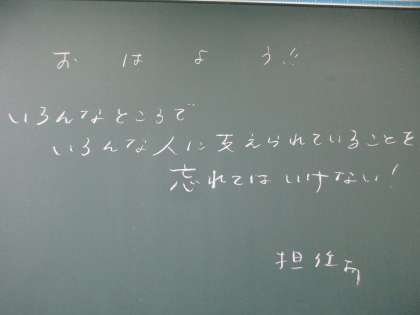 おはよう!!
いろんなところで
いろんな人に支えられていることを
忘れてはいけない!
担任